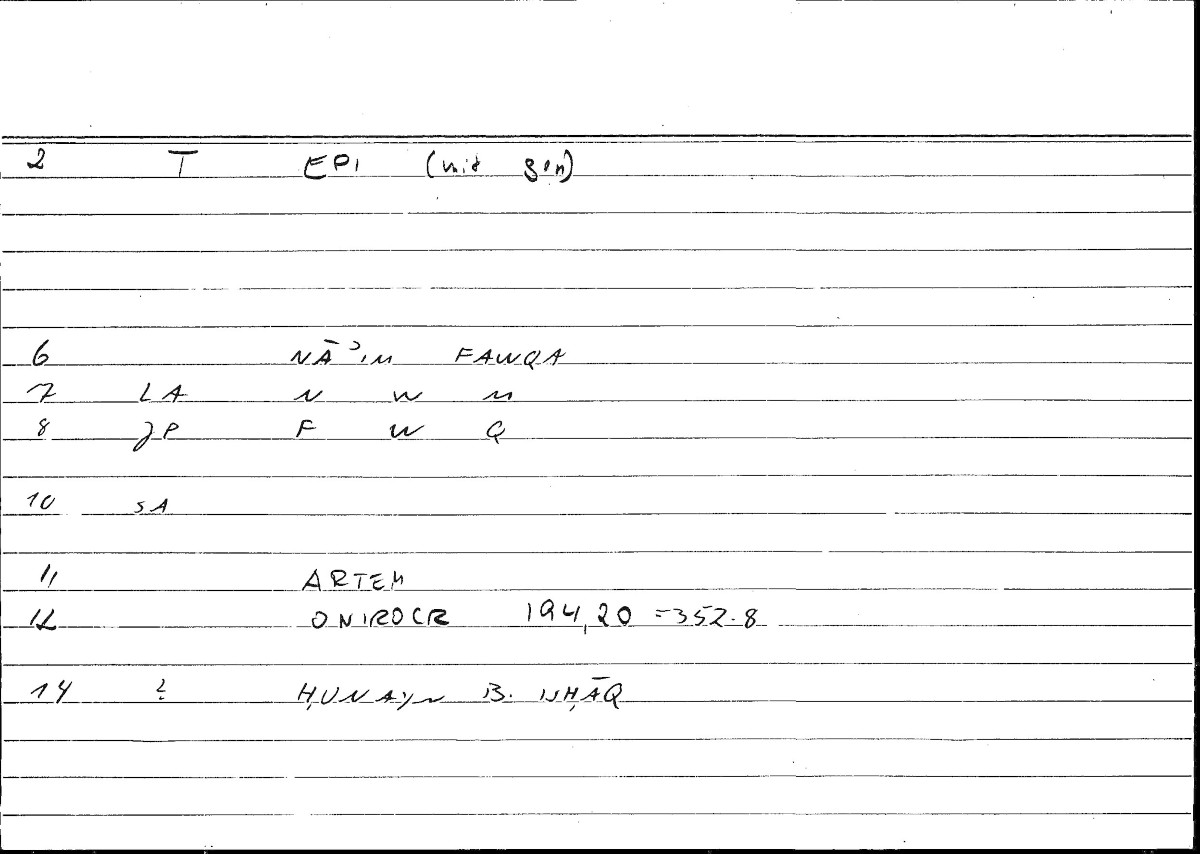 2 T EPI (mit gen)
6 NĀʾIM FAWQA
7 LA N W M
8 JP F W Q
10 SA
11 ARTEM
12 ONIROCR 194,20 =352.8
14 ? ḤUNAYN B. ISḤĀQ